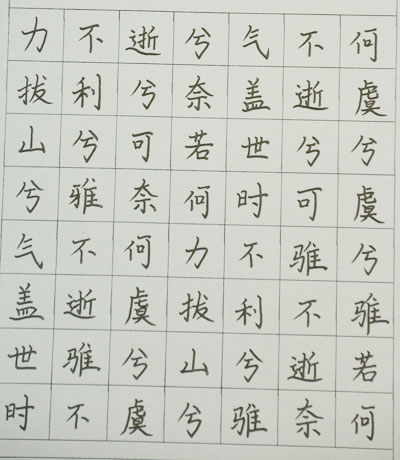 力拔山兮气盖世时
不利兮雅不逝骓不
逝兮可奈何虞兮虞
兮奈若何力拔山兮
气盖世时不利兮骓
不逝兮可骓不逝奈
何虞兮虞兮骓若何